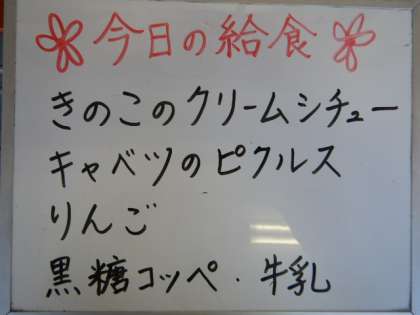 今日の給食
きのこのクリームシチュー
キャベツのピクルス
りんご
黒糖コッペ・牛乳